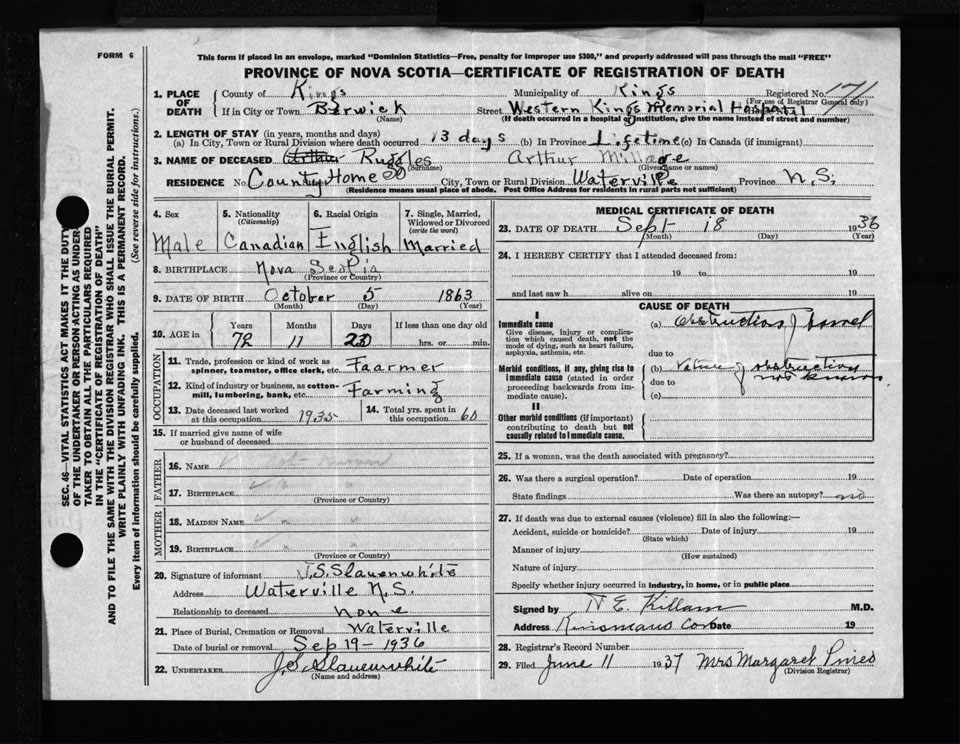 FORM 6
This form if placed in an envelope, marked "Dominion Statistics—Free, penalty for improper use $300," and properly addressed will pass through the mail "FREE"
PROVINCE OF NOVA SCOTIA—CERTIFICATE OF REGISTRATION OF DEATH
SEC. 46—VITAL STATISTICS ACT MAKES IT THE DUTY
OF THE UNDERTAKER OR PERSON ACTING AS UNDER-
TAKER TO OBTAIN ALL THE PARTICULARS REQUIRED
IN THE "CERTIFICATE OF REGISTRATION OF DEATH"
AND TO FILE THE SAME WITH THE DIVISION REGISTRAR WHO SHALL ISSUE THE BURIAL PERMIT.
WRITE PLAINLY WITH UNFADING INK. THIS IS A PERMANENT RECORD.
Every item of information should be carefully supplied. (See reverse side for instructions.)
1. PLACE OF DEATH County of Kings Municipality of Kings Registered No. 171
(For use of Registrar General only)
If in City or Town Berwick Street Western Kings Memorial Hospatil
(Name) (If death occurred in a hospital or institution, give the name instead of street and number)
2. LENGTH OF STAY (in years, months and days)
(a) In City, Town or Rural Division where death occurred 13 days (b) In Province Lifetime (c) In Canada (if immigrant)
3. NAME OF DECEASED Arthur Ruggles Arthur Millage
(Surname) (Given name or names)
RESIDENCE No County Home St City, Town or Rural Division Waterville Province N.S.
(Residence means usual place of abode. Post Office Address for residents in rural parts not sufficient)
4. Sex Male
5. Nationality (Citizenship) Canadian
6. Racial Origin English
7. Single, Married, Widowed or Divorced (write the word) Married
8. BIRTHPLACE Nova Scotia
(Province or Country)
9. DATE OF BIRTH October 5 1863
(Month) (Day) (Year)
10. AGE in Years Months Days If less than one day old
72 11 hrs. or min.
OCCUPATION
11. Trade, profession or kind of work as spinner, teamster, office clerk, etc. Faarmer
12. Kind of industry or business, as cotton-mill, lumbering, bank, etc. Farming
13. Date deceased last worked at this occupation 1935
14. Total yrs. spent in this occupation 60
15. If married give name of wife or husband of deceased
FATHER
16. NAME not known
17. BIRTHPLACE
(Province or Country)
MOTHER
18. MAIDEN NAME
19. BIRTHPLACE
(Province or Country)
20. Signature of informant J.S. Slauenwhite
Address Waterville N.S.
Relationship to deceased none
21. Place of Burial, Cremation or Removal Waterville
Date of burial or removal Sep 19-1936
22. UNDERTAKER J.S. Slauenwhite
(Name and address)
MEDICAL CERTIFICATE OF DEATH
23. DATE OF DEATH Sept 18 1936
(Month) (Day) (Year)
24. I HEREBY CERTIFY that I attended deceased from:
19 to 19
and last saw h alive on 19
CAUSE OF DEATH
I
Immediate cause (a) Obstruction of bowel
Give disease, injury or complication which caused death, not the mode of dying, such as heart failure, asphyxia, asthenia, etc.
due to
Morbid conditions, if any, giving rise to immediate cause (stated in order proceeding backwards from immediate cause).
(b) Nature of obstruction
due to not known
(c)
II
Other morbid conditions (if important) contributing to death but not causally related to immediate cause.
25. If a woman, was the death associated with pregnancy?
26. Was there a surgical operation? Date of operation 19
State findings Was there an autopsy? no
27. If death was due to external causes (violence) fill in also the following:—
Accident, suicide or homicide? Date of injury 19
(State which)
Manner of injury
(How sustained)
Nature of injury
Specify whether injury occurred in industry, in home, or in public place
Signed by N E. Killam M.D.
Address Kinsmans Cor Date 19
28. Registrar's Record Number
29. Filed June 11 1937 Mrs Margaret
(Division Registrar)